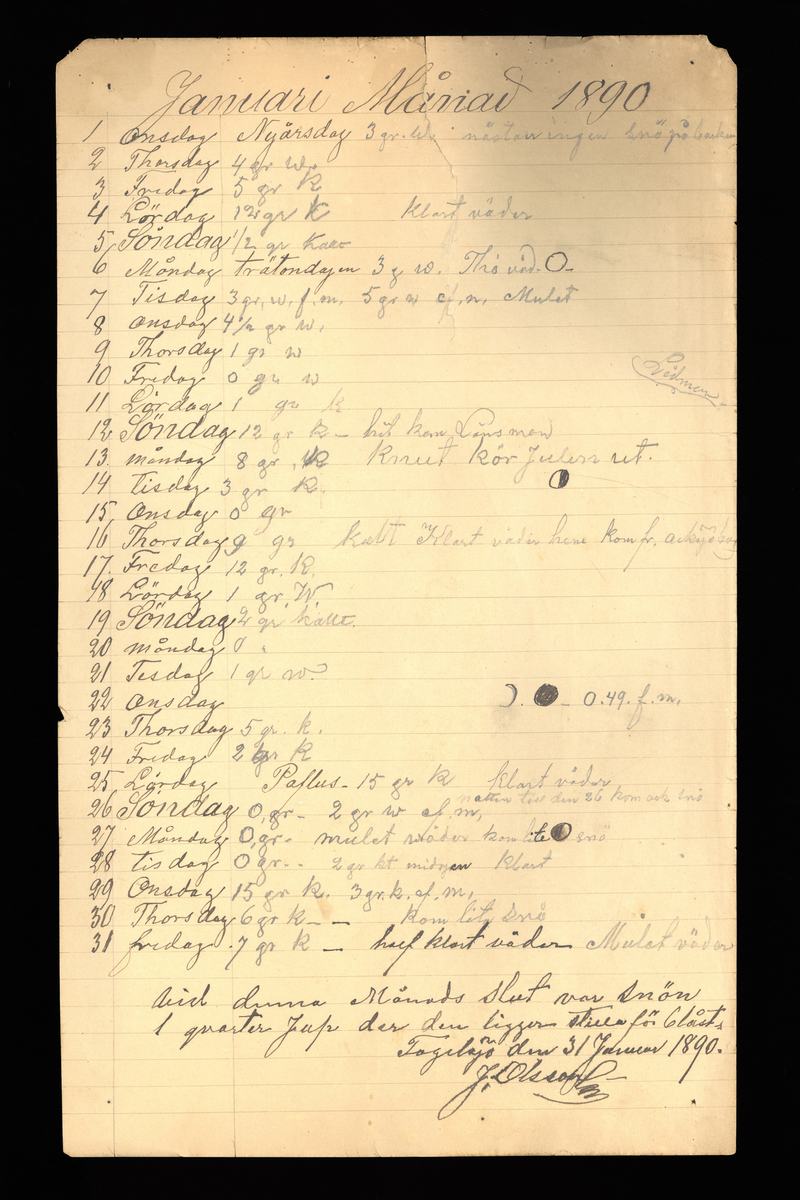 Januari Månad 1890
1 Onsdag Nyårsdag 3 gr. W. nästan ingen snö på backen
2 Thorsdag 4 gr w.
3 Fredag 5 gr K
4 Lördag 12 gr K Klart väder
5 Söndag 1/2 gr kallt
6 Måndag trätondagen 3 g w. Thö väd.
7 Tisdag 3 gr. w. f. m. 5 gr w ef. m. Mulet
8 Onsdag 4 1/2 gr w.
9 Thorsdag 1 gr w
10 Fredag 0 gr w
11 Lördag 1 gr k
12 Söndag 12 gr K — hit kom Länsman
13 måndag 8 gr K Knut kör Julen ut.
14 tisdag 3 gr K.
15 Onsdag 0 gr
16 Thorsdag 9 gr kallt Klart väder kom fr.
17. Fredag 12 gr. K.
18 Lördag 1 gr. W
19 Söndag 2 gr kallt.
20 måndag 0 "
21 Tisdag 1 gr w.
22 Onsdag 0.49. f. m.
23 Thorsdag 5 gr. k.
24 Fredag 2 gr K
25 Lördag Paflus - 15 gr K klart väder
natten till den 26 kom ock snö
26 Söndag 0 gr — 2 gr w ef. m.
27 Måndag 0 gr. mulet wäder kom lite snö
28 tisdag 0 gr. - 2 gr kt midgen Klart
29 Onsdag 15 gr K. 3 gr. k. ef. m.
30 Thorsdag 6 gr K — — kom lite snö
31 fredag 7 gr K — half klart väder Mulet väder
vid denna Månads slut var snön
1 qvarter Jup der den ligger stilla för blåst.
Fogelsjö den 31 Januar 1890.
J. Olsson